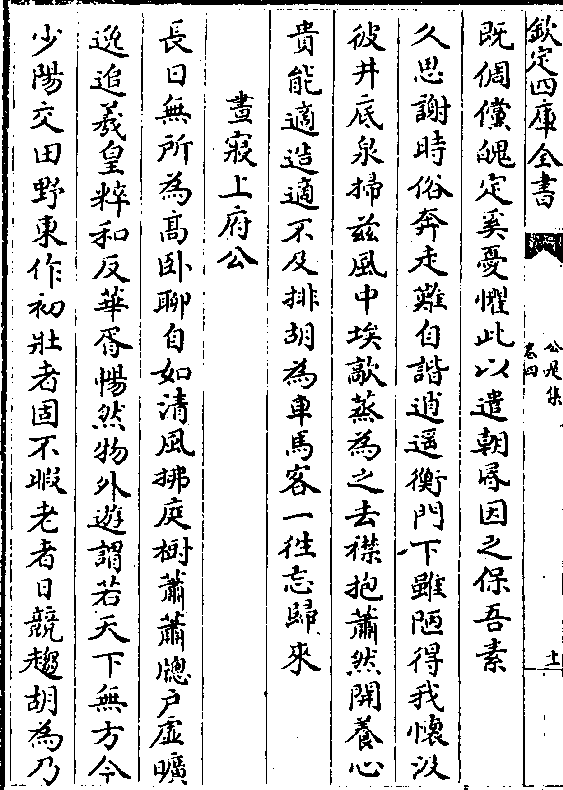 欽定四庫全書
公是集
卷四
十一
既倜儻醜定奚憂懼此以遣朝昬因之保吾素
久思謝時俗奔走難自諧逍遥衡門下雖陋得我懷汲
彼井底泉掃兹風中埃歊蒸為之去襟抱蕭然開養心
貴能適造適不及排胡為車馬客一徃忘歸來
晝寢上府公
長日無所為髙卧聊自如清風拂庭樹蕭蕭牕户虚曠
逸追羲皇粹和反華胥暢然物外遊謂若天下無方今
少陽交田野東作初壯者固不暇老者日競趨胡為乃